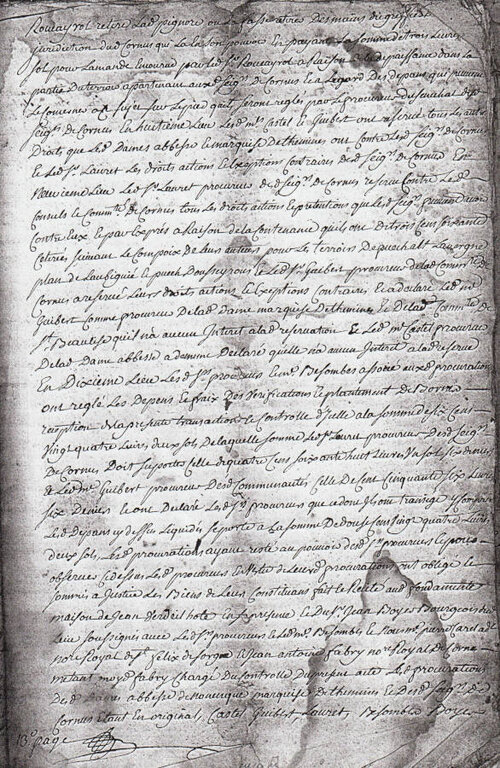 Roucayrol retire Lad. pignore ou La fasse retirer Des mains du greffier de
jurisdiction dud Cornus qui La En son pouvoir En payant La somme de trois Livres
sol pour Lamande Encourue par Led Sr Roucayrol a raison de la depaissance dans la
partie du terroir apartenant aux Seigrs De Cornus Et a Legard Des depans qui peuvent
Seigrs de Cornus En huitieme Lieu Lesd mes Castel et Guibert ont reservé tous les autres
Droits que Les Dames abbesse et marquise De themines ont Contre Lesd Seigrs de Cornus
et Led Sr Lauret Les droits actions et Exceptions Contraires desd Seigrs de Cornus En
Neuvieme Lieu Led Sr Lauret procureur desd Seigrs de Cornus reserve Contre Lesd
Consuls et Commté de Cornus tous Les droits actions et pretentions que Lesd Seigrs peuvent avoir
Contre Eux et par Exprès a Raison de la Contenance quils ont De trois Cens soixante
Ceterées suivant Le Compoix De Leurs autheurs pour Les terroirs De puechalt Lavergne
plan de Laubiguié et puech Et Led Sr Guibert procureur de lad Commté De
Cornus a reservé Leurs droits actions et Exceptions Contraires et a declaré Led me
Guibert Comme procureur De lad Dame marquise De themines et De lad Commté De
St Beaulise quil na aucun Interet a lad reservation & Led me Castel procureur
De lad Dame abbesse a de meme Declaré quelle na aucun Interet a lad reserve
En Dixieme Lieu Lesd Srs procureurs et me Besombes assisté auxd procurations
ont reglé Les Depens et fraix Des Verifications et plantement De Bornes
reception de la presente transaction et Controlle dicelle a la somme de six Cens
Vingt quatre Livres deux sols De laquelle somme Led Sr Lauret procureur Desd Seigrs
De Cornus Doit Suporter Celle de quatre Cens soixante huit Livres Un sol six deniers
& Led me Guibert procureur Desd Communautés Celle De Cent Cinquante six Livres
six Deniers et ont Declaré Lesd Srs procureurs que ce dont Ils ont transigé y Compris
Les depans cy dessus Liquidés se porte a La somme De douse Cens Vingt quatre Livres
deux sols, Lesd procurations ayant resté au pouvoir desd Srs procureurs et pour
observer ci dessus Lesd procureurs En Vertu de Leursd procurations ont obligé et
soumis a Justice Les Biens de Leurs Constituans fait et Recité aud fondamente
maison de Jean Verdeil hote En presence de Sr Jean Boyer Bourgeois dud
Lieu soussignés avec Lesd Srs procureurs et Led me Besombes et Nous me pierre
nore Royal de St felix de sorgue et Jean antoine fabry nore Royal de Cornus
restant moy d fabry Chargé du Controlle du present acte Les procurations
Desd Dames abbesse de nonenque marquise de themines et Desd Seigrs De
Cornus Etant En original, Castel Guibert Lauret, Besombes Boyer
13e page